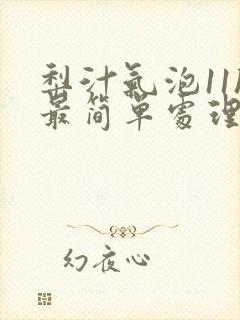 梨汁氣泡11
最简单處理
幻夜心